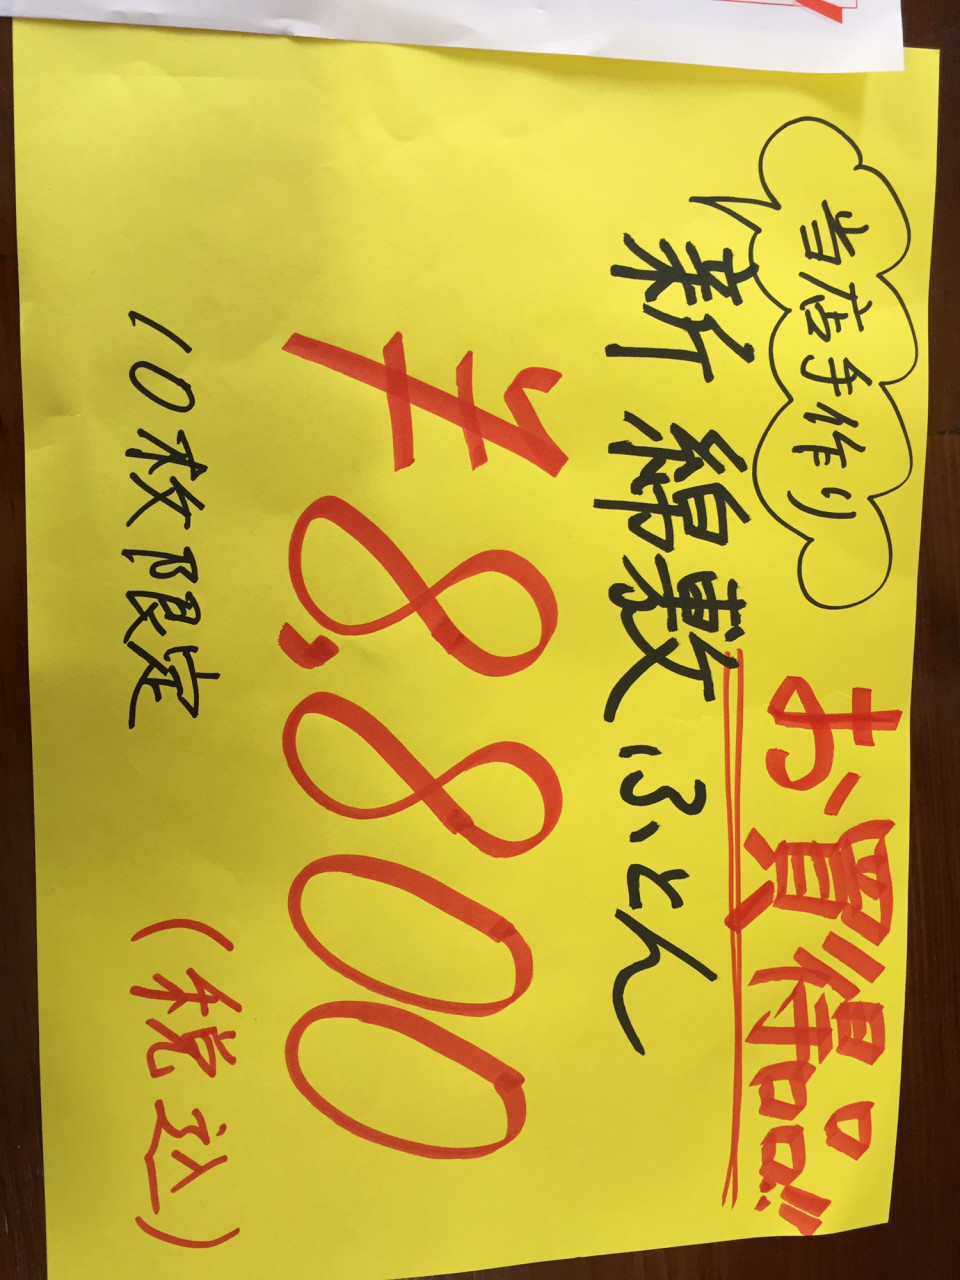 当店手作り
お買得品!!
新綿敷ふとん
¥8,800
10枚限定
(税込)